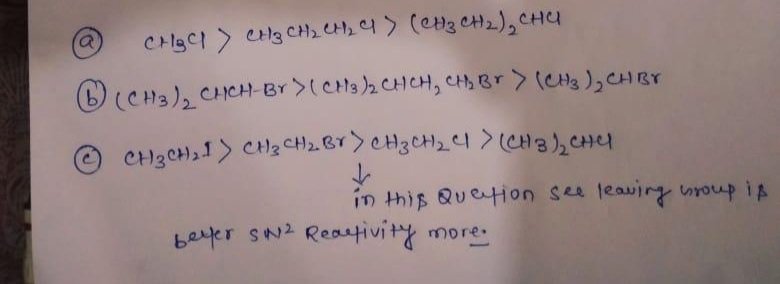 (a) CH3Cl > CH3CH2CH2Cl > (CH3CH2)2CHCl
(b) (CH3)2CHCH-Br > (CH3)2CHCH2CH2Br > (CH3)2CHBr
(c) CH3CH2I > CH3CH2Br > CH3CH2Cl > (CH3)2CHCl
↓
in this Question see leaving group is
better SN2 Reactivity more.